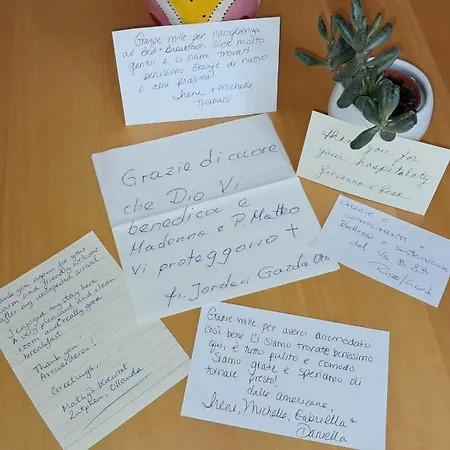 Grazie mille per l'accoglienza
al Bed + Breakfast. Siete molto
gentili e ci siamo trovati
benissimo. Grazie di nuovo
e alla prossima!
Irene + Michelle
Tirabassi
Thank you for
your hospitality
Grazie di cuore
che Dio Vi
benedica e
Madonna e P. Matteo
Vi proteggono +
fr. Jordan Gazda
Grazie e
complimenti
Bellezza e
del Vs B&B
Thank you again for your
warm and friendly welcome
after my unexpected arrival
I enjoyed my stay here
a very pleasant and clean
room and really good
breakfast.
Thank you.
Arrivederci!
Greetings,
Zutphen, Olanda
Grazie mille per averci accomodato
così bene. Ci siamo trovate benissimo
qui, è tutto pulito e comodo.
Siamo grate e speriamo di
tornare presto!
dalle americane,
Irene, Michelle, Gabriella +
Daniella